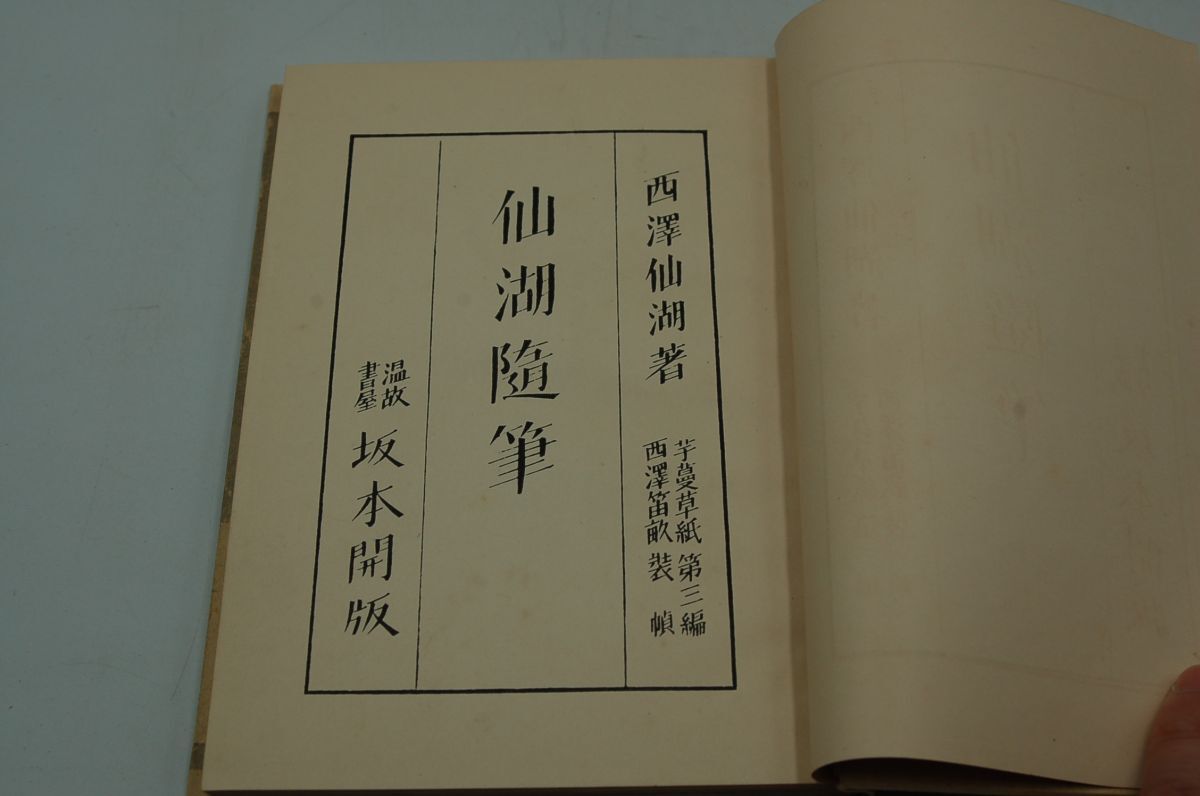 西澤仙湖著
芋蔓草紙 第三編
西澤笛畝 裝幀
仙湖隨筆
温故
書屋
坂本開版